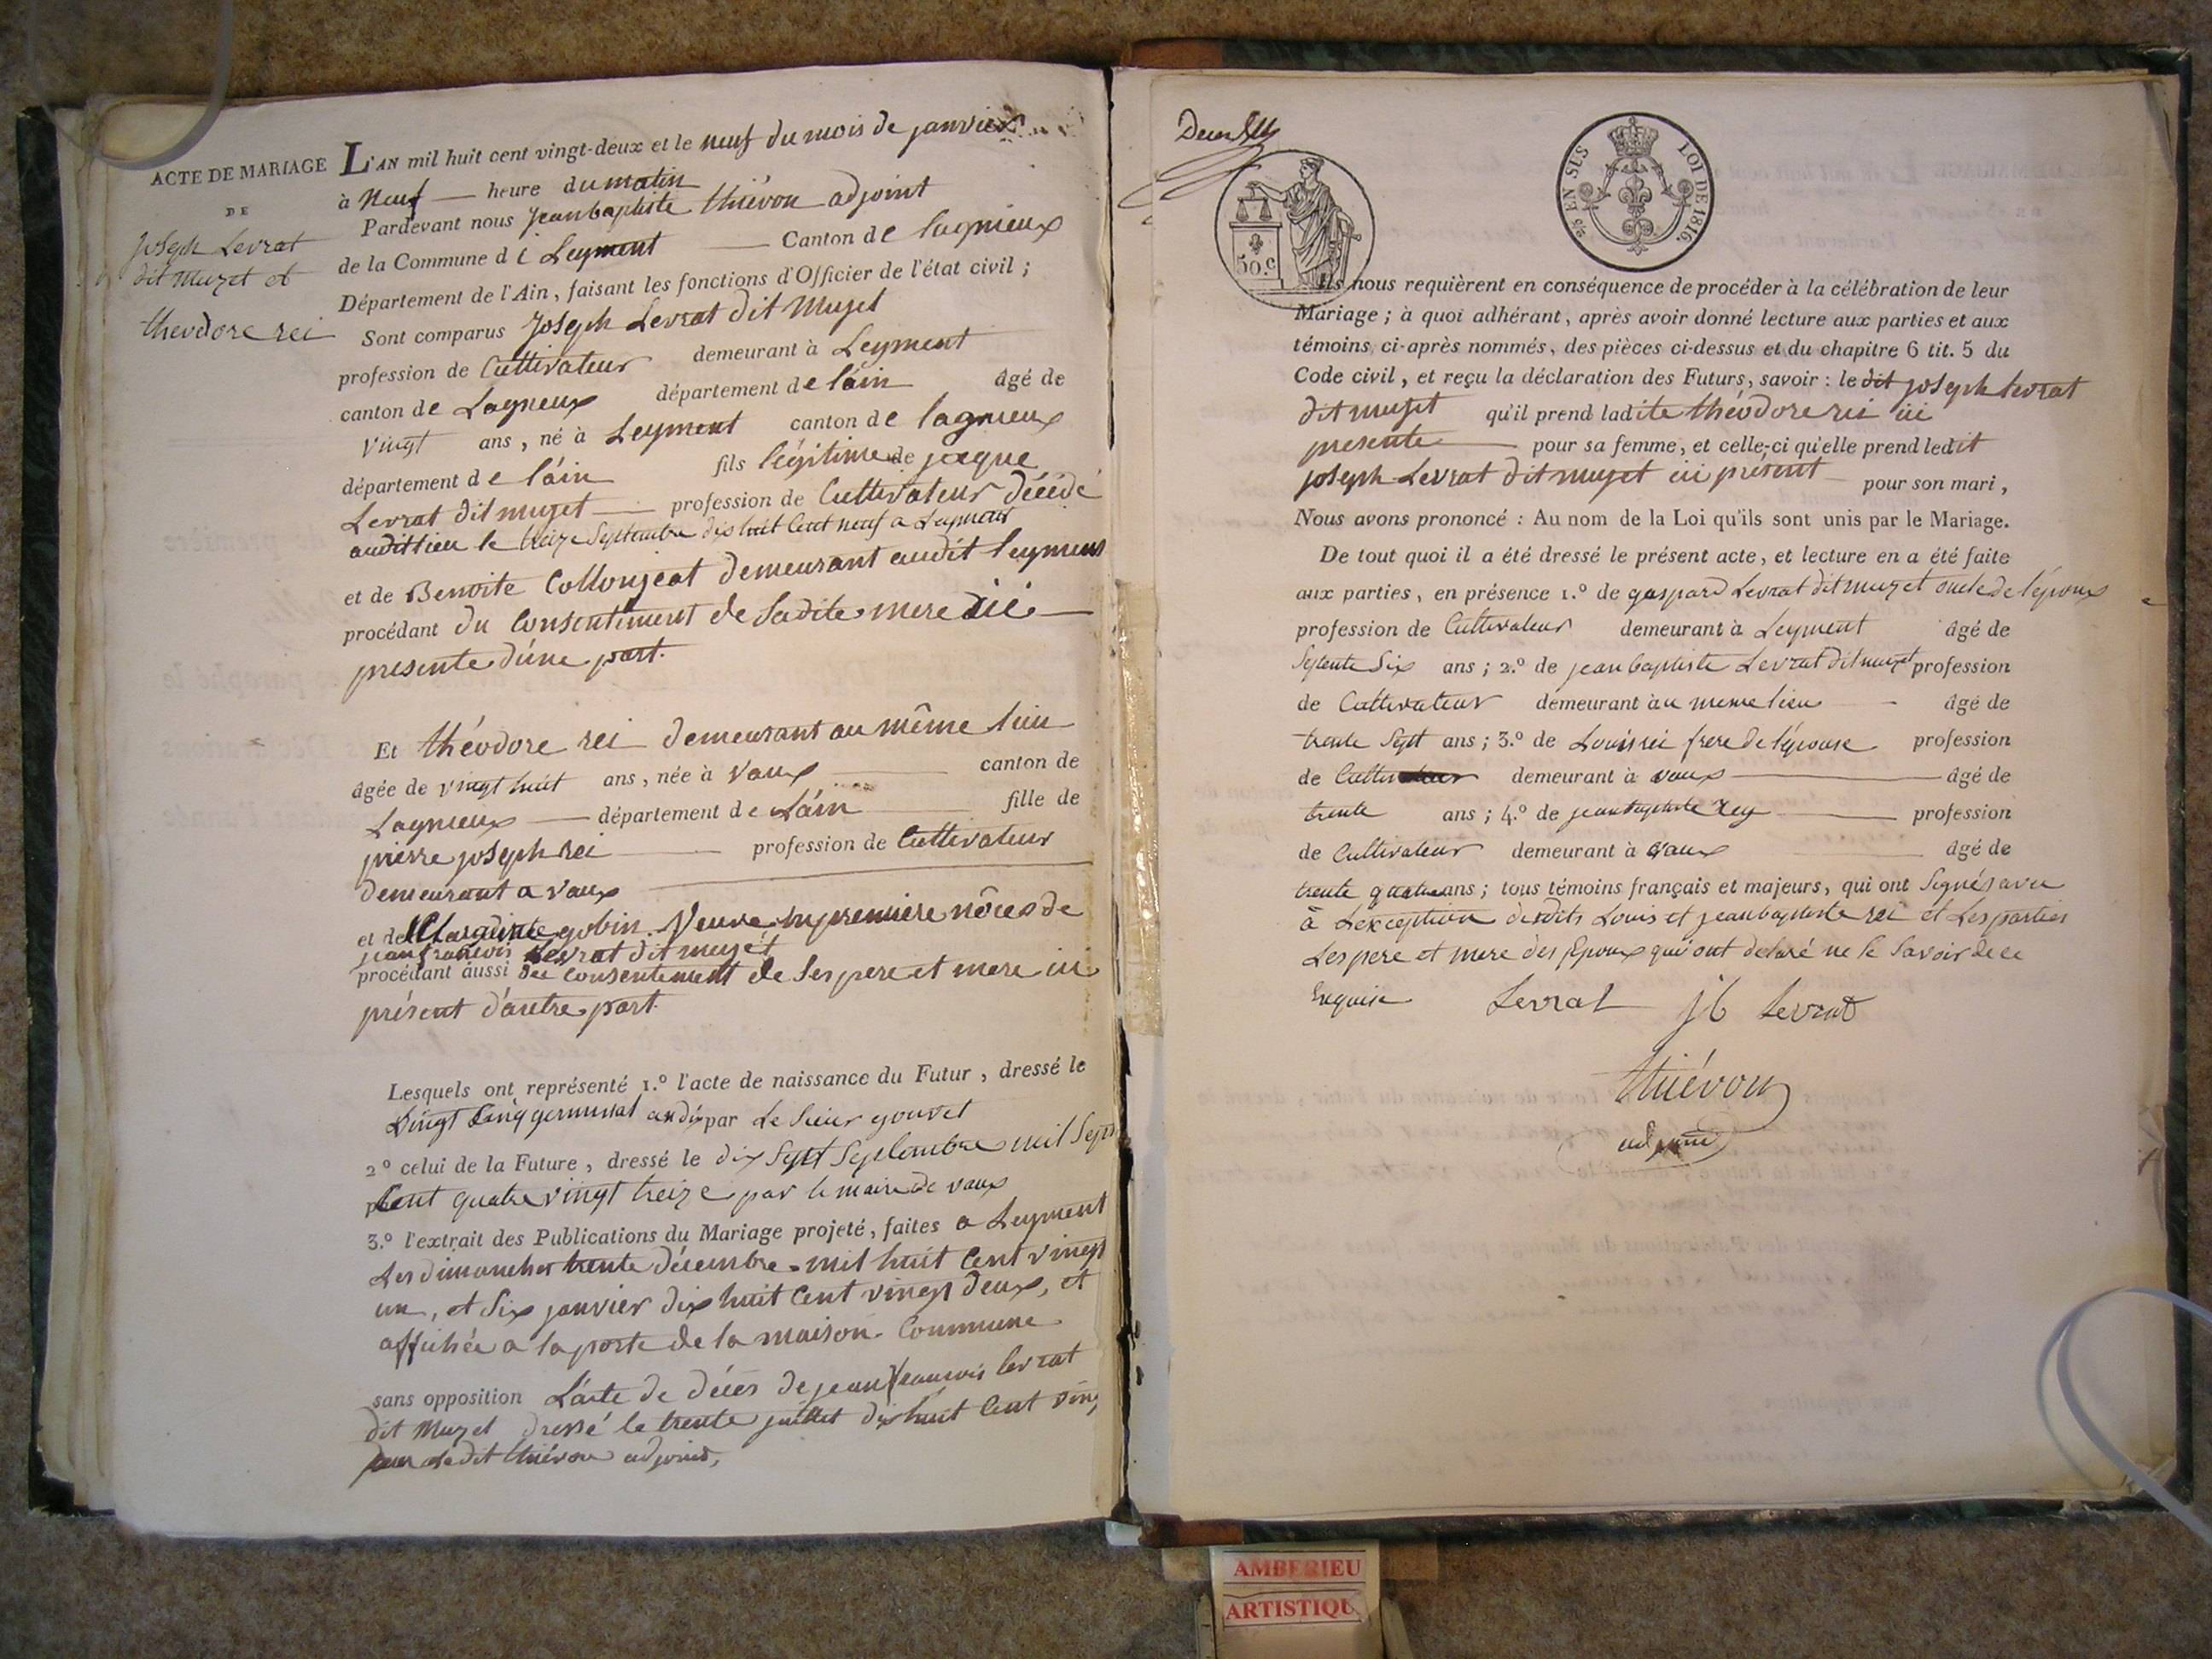 ACTE DE MARIAGE
DE
Joseph Levrat
dit Muzet et
theodore rei
L'AN mil huit cent vingt-deux et le neuf du mois de janvier
à neuf — heure du matin
Pardevant nous jean baptiste thiévon adjoint
de la Commune d e Leyment — Canton de lagnieux
Département de l'Ain, faisant les fonctions d'Officier de l'état civil ;
Sont comparus Joseph Levrat dit Muzet
profession de Cultivateur demeurant à Leyment
canton de Lagnieux département de láin âgé de
vingt ans, né à Leyment canton de lagnieux
département de láin fils légitime de jaque
Levrat dit muzet — profession de Cultivateur décédé
audit lieu le treize Septembre dix huit Cent neuf a Leyment
et de Benoite Collonjeat demeurant audit leyment
procédant du Consentiment de Sadite mere ici —
presente d'úne part.
Et théodore rei demeurant au même lieu
âgée de vingt huit ans, née à Vaux — canton de
Lagnieux — département de Láin — fille de
pierre joseph rei — profession de Cultivateur
demeurant a vaux —
et de Claudine gobin. Veuve en première nôces de
jean francois Levrat dit muzét
procédant aussi du consentement de Ses pere et mere ici
présent d'autre part.
Lesquels ont représenté 1.º l'acte de naissance du Futur, dressé le
Vingt Cinq germinal an dix par Le Sieur gouvet
2º celui de la Future, dressé le dix Sept Septembre mil Sept
Cent quatre vingt treize par le maire de vaux
3.º l'extrait des Publications du Mariage projeté, faites a Leyment
Les dimanches trente décembre mil huit Cent vingt
un, et Six janvier dix huit Cent vingt deux, et
affichée a la porte de la maison Commune
sans opposition L'acte de décès de jean francois levrat
dit Muzet dressé le trente juillet dix huit Cent vingt
par Ledit thiévon adjoint,
Deux
50.C
EN SUS
LOI DE 1816.
Ils nous requièrent en conséquence de procéder à la célébration de leur
Mariage ; à quoi adhérant, après avoir donné lecture aux parties et aux
témoins ci-après nommés, des pièces ci-dessus et du chapitre 6 tit. 5 du
Code civil, et reçu la déclaration des Futurs, savoir : le dit joseph levrat
dit muzet qu'il prend ladite théodore rei ici
presente — pour sa femme, et celle-ci qu'elle prend ledit
joseph Levrat dit muzet ici présent — pour son mari,
Nous avons prononcé : Au nom de la Loi qu'ils sont unis par le Mariage.
De tout quoi il a été dressé le présent acte, et lecture en a été faite
aux parties, en présence 1.º de gaspard Levrat dit muzet oncle de l'époux
profession de Cultivateur demeurant à Leyment âgé de
Septente Six ans ; 2.º de jean baptiste Levrat dit muzet profession
de Cultivateur demeurant à au meme lieu — âgé de
trente Sept ans ; 3.º de Louis rei frere de l'épouse profession
de Cultivateur demeurant à vaux — âgé de
trente ans ; 4.º de jean baptiste Rey — profession
de Cultivateur demeurant à vaux — âgé de
trente quatre ans ; tous témoins français et majeurs, qui ont Signés avec
à L'exception desdits Louis et jean baptiste rei et Les parties
Les pere et mere des Epoux qui ont declaré ne le Savoir de ce
Enquise Levrat jb Levrat
thiévon
adjoint
AMBERIEU
ARTISTIQU